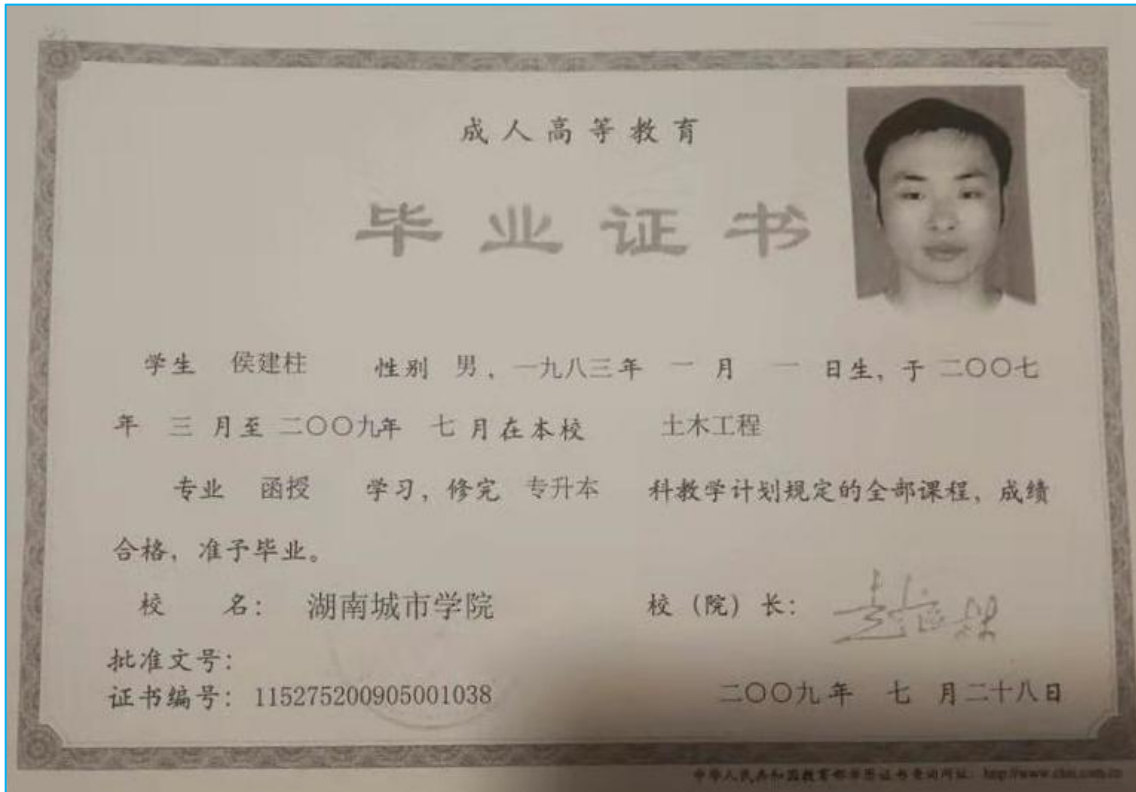 成人高等教育
毕业证书
学生 侯建柱 性别 男，一九八三年 一 月 一 日生，于 二〇〇七
年 三 月至 二〇〇九年 七 月在本校 土木工程
专业 函授 学习，修完 专升本 科教学计划规定的全部课程，成绩
合格，准予毕业。
校 名： 湖南城市学院 校（院）长：
批准文号：
证书编号：115275200905001038 二〇〇九年 七 月二十八日
中华人民共和国教育部学历证书查询网址：http://www.chsi.com.cn